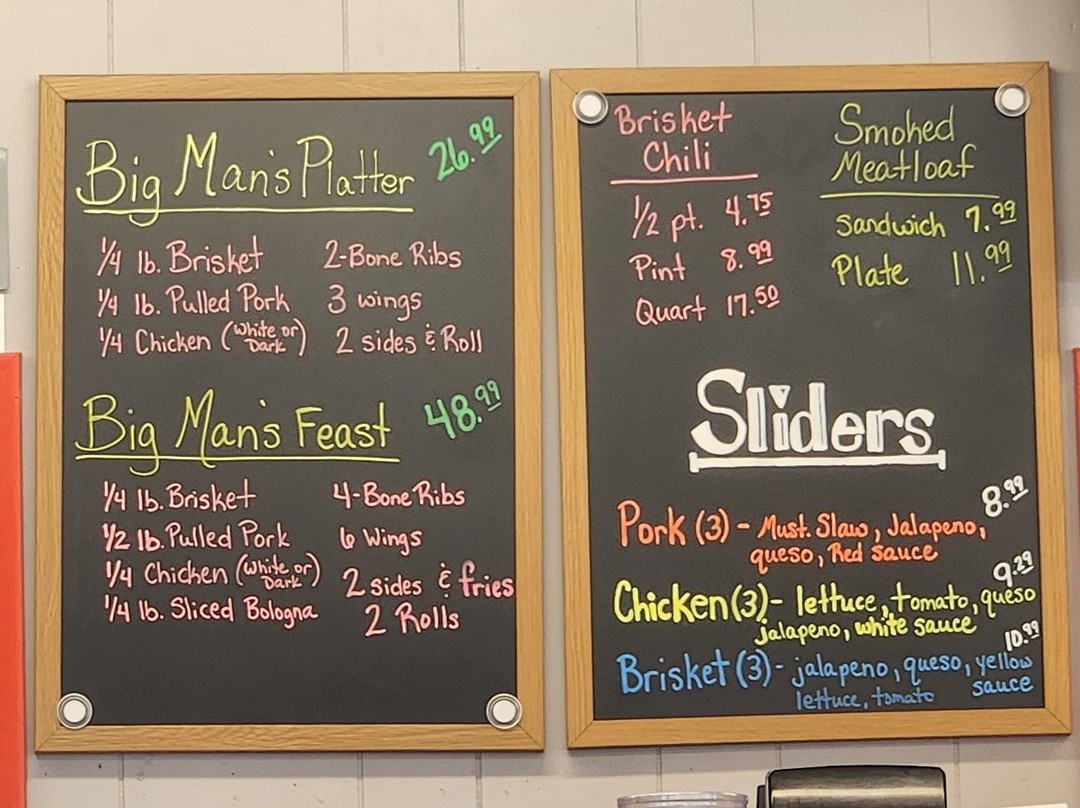 Big Man's Platter 26.99
1/4 lb. Brisket
1/4 lb. Pulled Pork
1/4 Chicken (White or Dark)
2-Bone Ribs
3 wings
2 sides & Roll
Big Man's Feast 48.99
1/4 lb. Brisket
1/2 lb. Pulled Pork
1/4 Chicken (White or Dark)
1/4 lb. Sliced Bologna
4-Bone Ribs
6 Wings
2 sides & fries
2 Rolls
Brisket
Chili
1/2 pt. 4.75
Pint 8.99
Quart 17.50
Smoked
Meatloaf
Sandwich 7.99
Plate 11.99
Sliders
8.99
Pork (3) - Must. Slaw, Jalapeno,
queso, Red sauce
9.29
Chicken (3) - lettuce, tomato, queso
jalapeno, white sauce
10.99
Brisket (3) - jalapeno, queso, yellow
lettuce, tomato sauce